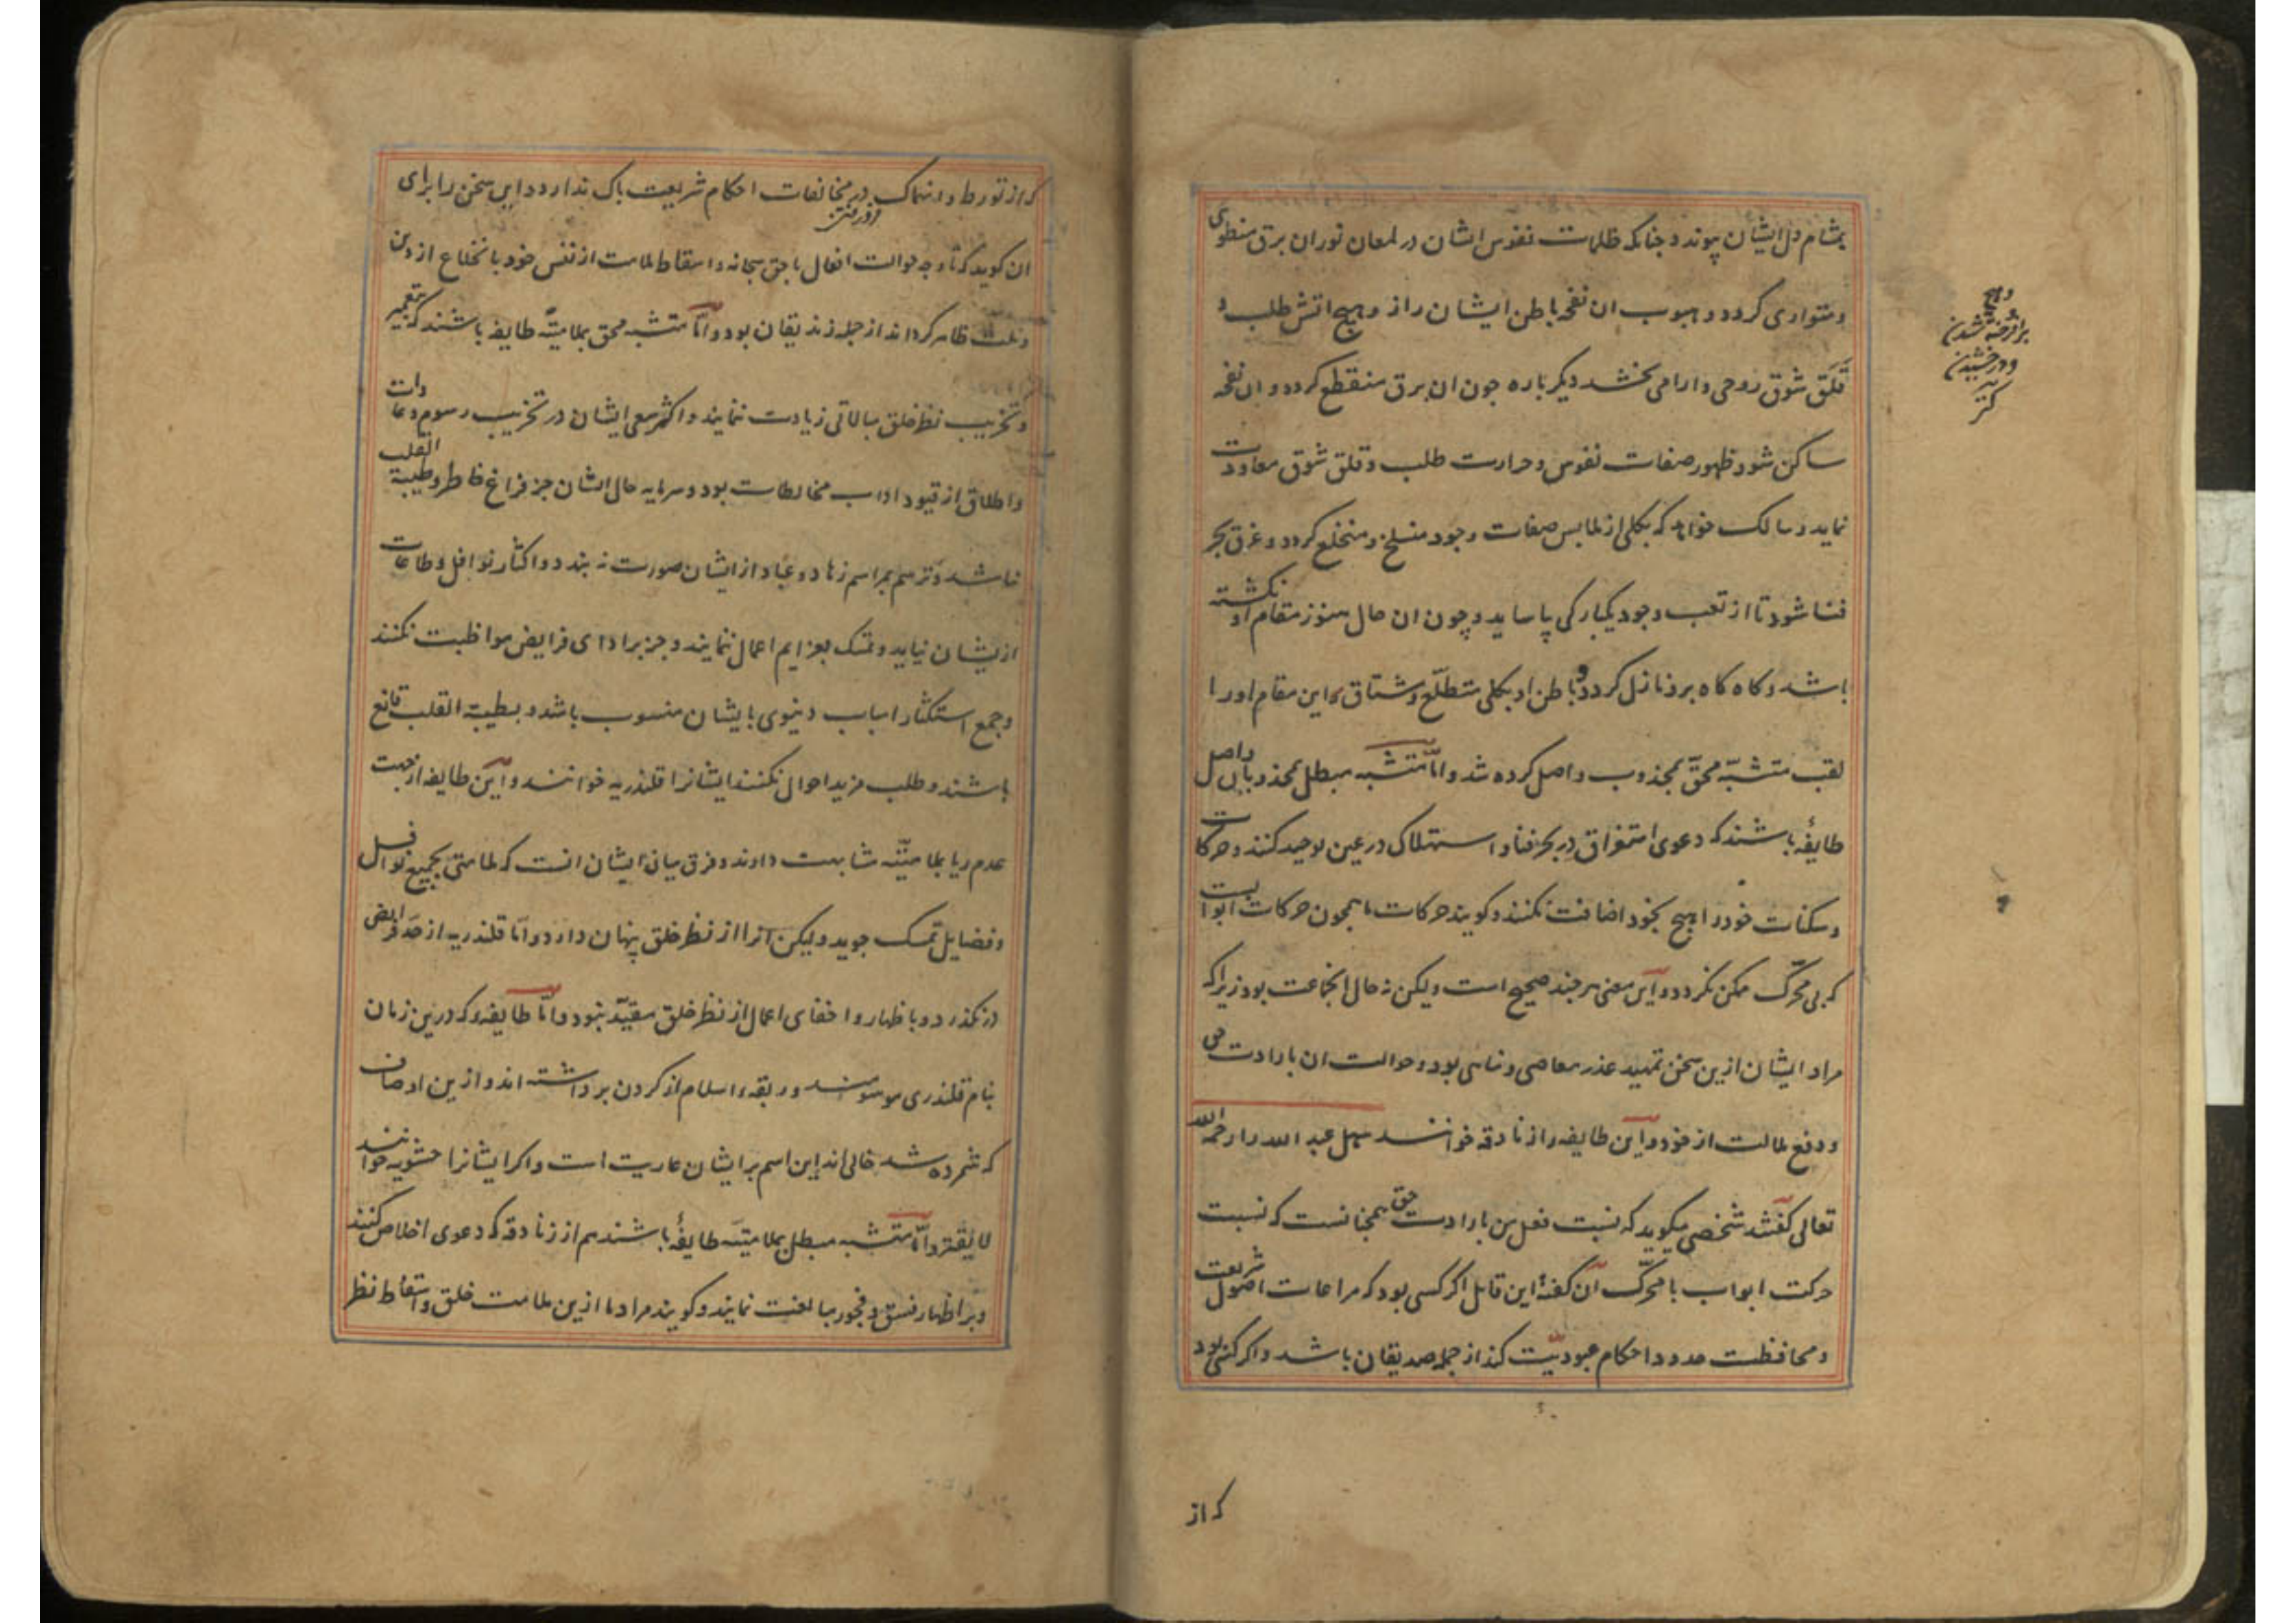 بمشام دل ایشان پیوندد چنانکه ظلمات نفوس ایشان در لمعان نور ان برق منطوی
و متواری کردد و هبوب ان نفحه باطن ایشان را از وهیج اتش طلب و
قلق شوق روحی و ارامی بخشد دیکر باره چون ان برق منقطع کردد و ان نفحه
ساکن شود ظهور صفات نفوس و حرارت طلب و قلق شوق معاودت
نماید و سالک خواهد که بکلی از ملابس صفات وجود منسلخ و منخلع کردد و غرق بحر
فنا شود تا از تعب وجود یکبارکی بیاساید و چون ان حال هنوز مقام او نکشته
باشد و کاه کاه برو نازل کردد و باطن او بکلی متطلع و مشتاق این مقام او را
لقب متشبه محق بمجذوب واصل کرده شد و اما متشبه مبطل بمجذوبان واصل
طایفهٔ باشند که دعوی استغراق در بحر فنا و استهلاک در عین توحید کنند و حرکات
و سکنات خود را هیچ بخود اضافت نکنند و کویند حرکات ما همچون حرکات ابوابست
که بی محرک ممکن نکردد و این معنی هر چند صحیح است ولیکن نه حال انجماعت بود زیرا که
مراد ایشان ازین سخن تمهید عذر معاصی و مناهی بود و حوالت ان با ارادت حق
و دفع ملالت از خود و این طایفه را زنادقه خوانند سهل عبد الله را رحمه الله
تعالی کفتند شخصی میکوید که نسبت فعل من با ارادت حق همچنانست که نسبت
حرکت ابواب با محرک ان کفت این قایل اکر کسی بود که مراعات اصول شریعت
و محافظت حدود احکام عبودیت کند از جمله صدیقان باشد و اکر کسی بود
که از
وهیج
برافروخته شدن
و درخشیدن
کنز
که از تورط و انهماک در مخالفات احکام شریعت باک ندارد و این سخن را برای
فرو رفتن
ان کوید که تا وجه حوالت افعال با حق سبحانه و اسقاط ملامت از نفس خود با نخلاع از دین
و ملت ظاهر کرداند از جمله زندیقان بود و اما متشبه محق بملامتیه طایفه باشند که بتعمیر
و تخریب نظر خلق مبالاتی زیادت ننمایند و اکثر سعی ایشان در تخریب رسوم و عادات
و اطلاق از قیود اداب مخالطات بود و سرمایه حال ایشان جز فراغ خاطر و طیبة القلب
نباشد و ترسم بمراسم زهاد و عباد از ایشان صورت نه بندد و اکثار نوافل و طاعات
از یشان نیاید و تمسک بعزایم اعمال ننمایند و جز بر ادای فرایض مواظبت نکنند
و جمع استکثار اسباب دنیوی بایشان منسوب باشد و بطیبة القلب قانع
باشند و طلب مزید احوال نکنند ایشانرا قلندریه خوانند و این طایفه از جهت
عدم ریا بملامتیه مشابهت دارند و فرق میان ایشان انست که ملامتی بجمیع نوافل
و فضایل تمسک جوید ولیکن انرا از نظر خلق پنهان دارد و اما قلندریه از حد فرایض
در نکذرد و باظهار و اخفای اعمال از نظر خلق مقید نبود و اما طایفهٔ که درین زمان
بنام قلندری موسومند و ربقهٔ اسلام از کردن برداشته اند و ازین اوصاف
که شمرده شد خالی اند این اسم بر ایشان عاریت است و اکر ایشانرا حشویه خوانند
لایقتر و اما متشبه مبطل بملامتیه طایفهٔ باشند هم از زنادقه که دعوی اخلاص کنند
و بر اظهار فسق و فجور مبالغت نمایند و کویند مراد ما ازین ملامت خلق و اسقاط نظر